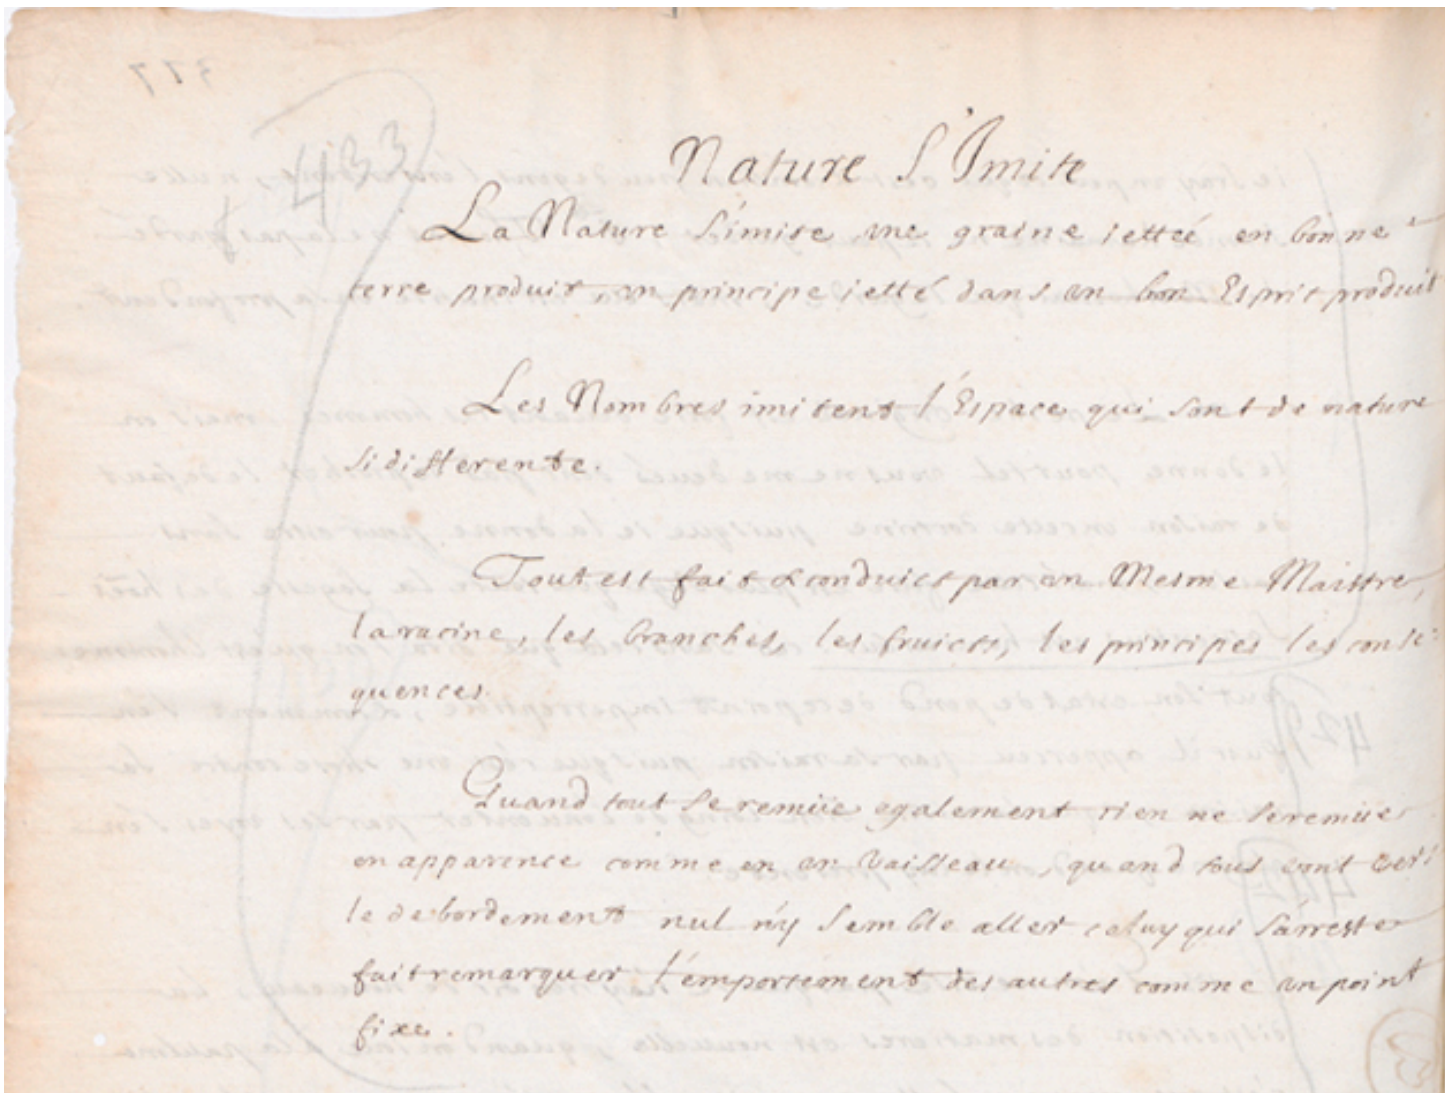 377
433
Nature S'Imite
La Nature S'imite une graine iettée en bonne
terre produit, un principe ietté dans un bon Esprit produit
Les Nombres imitent l'Espace qui sont de nature
si differente.
Tout est fait & conduict par un Mesme Maistre,
la racine, les branches, les fruicts, les principes les conse-
quences.
Quand tout se remüe egalement rien ne se remüe
en apparence comme en un Vaisseau, quand tous vont vers
le debordement nul n'y semble aller celuy qui s'arreste
fait remarquer l'emportement des autres comme un point
fixe.